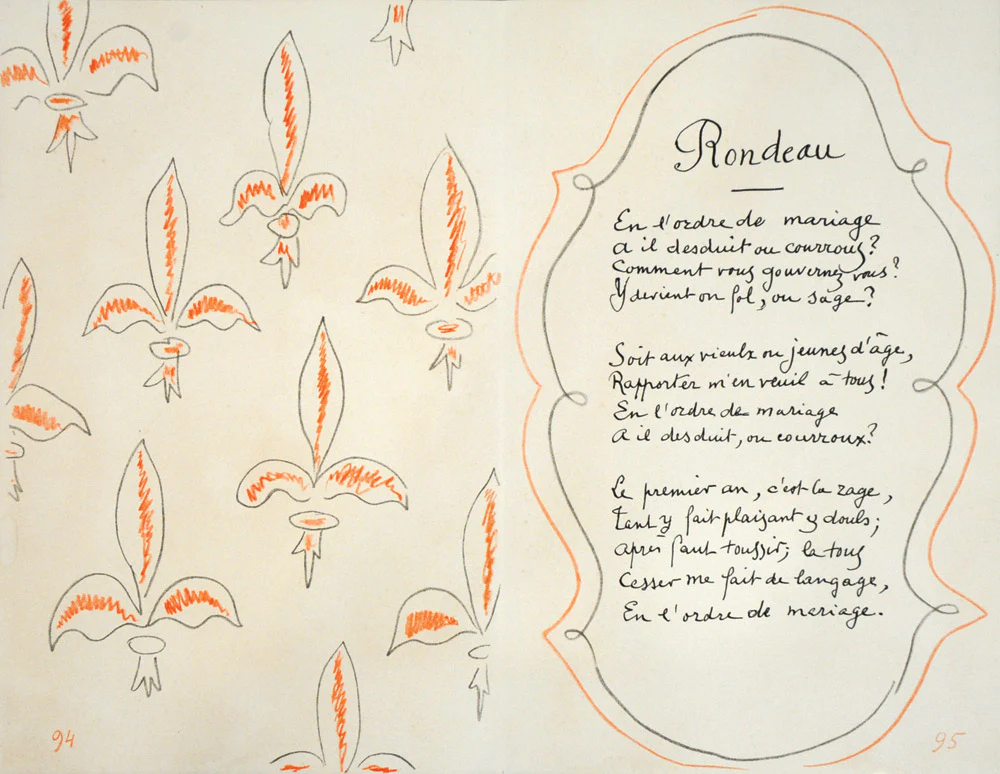 94
Rondeau
En l'ordre de mariage
a il desduit ou courrous?
Comment vous gouvernez vous?
Y devient on fol, ou sage?
Soit aux vieulx ou jeunes d'âge,
Rapporter m'en veuil à tous!
En l'ordre de mariage
a il desduit, ou courroux?
Le premier an, c'est la rage,
Tant y fait plaisant et douls;
après faut toussir; la tous
Cesser me fait de langage,
En l'ordre de mariage.
95